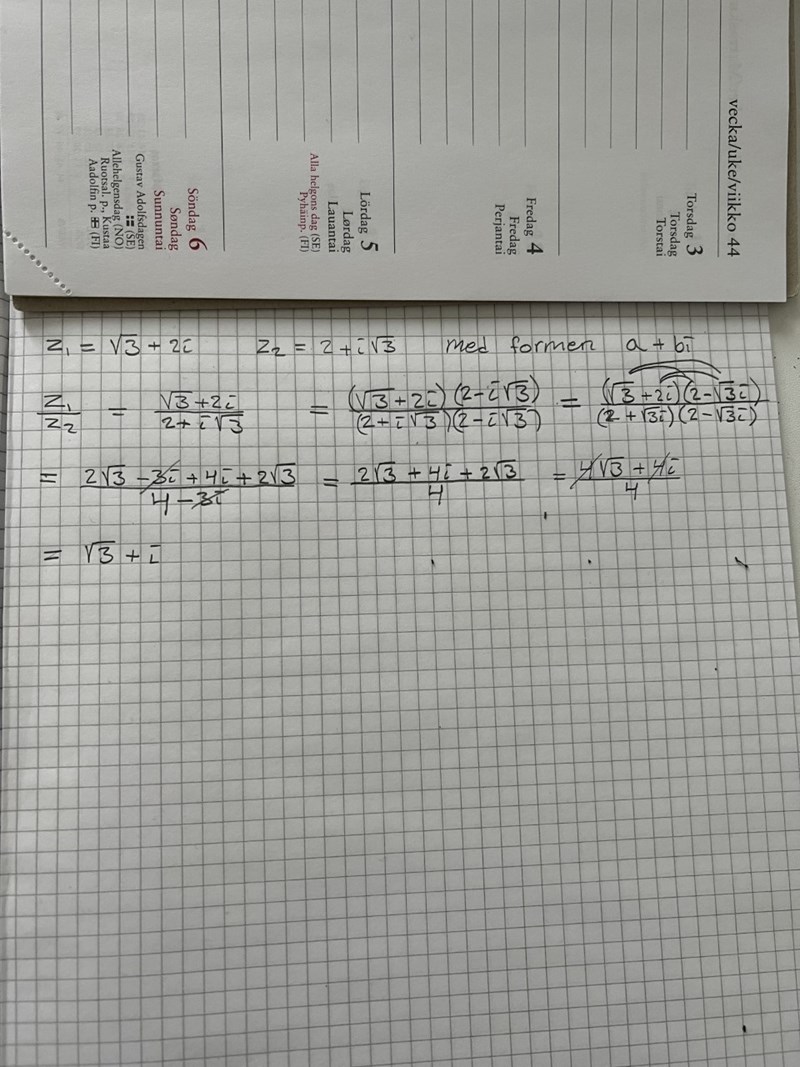 vecka/uke/viikko 44
Torsdag 3
Torsdag
Torstai
Fredag 4
Fredag
Perjantai
Lördag 5
Lørdag
Lauantai
Alla helgons dag (SE)
Pyhäinp. (FI)
Söndag 6
Søndag
Sunnuntai
Gustav Adolfsdagen
(SE)
Allehelgensdag (NO)
Ruotsal. p., Kustaa
Aadolfin p. (FI)
z₁ = √3 + 2i z₂ = 2 + i√3 med formen a + bi
z₁/z₂ = (√3 + 2i)/(2 + i√3) = ((√3 + 2i)(2 - i√3))/((2 + i√3)(2 - i√3)) = ((√3 + 2i)(2 - √3i))/((2 + √3i)(2 - √3i))
= (2√3 - 3i + 4i + 2√3)/(4 - 3i) = (2√3 + 4i + 2√3)/4 = (4√3 + 4i)/4
= √3 + i